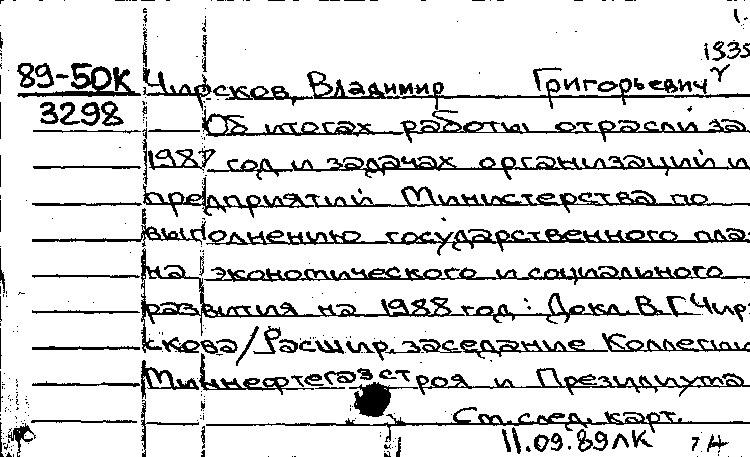 1935
89-50К Чирсков, Владимир Григорьевич
3298 Об итогах работы отрасли за
1987 год и задачах организаций и
предприятий Министерства по
выполнению государственного пла-
на экономического и социального
развития на 1988 год: Докл. В.Г. Чир-
скова/Расшир. заседание Коллегии
Миннефтегазстроя и Президиума
См. след. карт.
11.09.89 ЛК